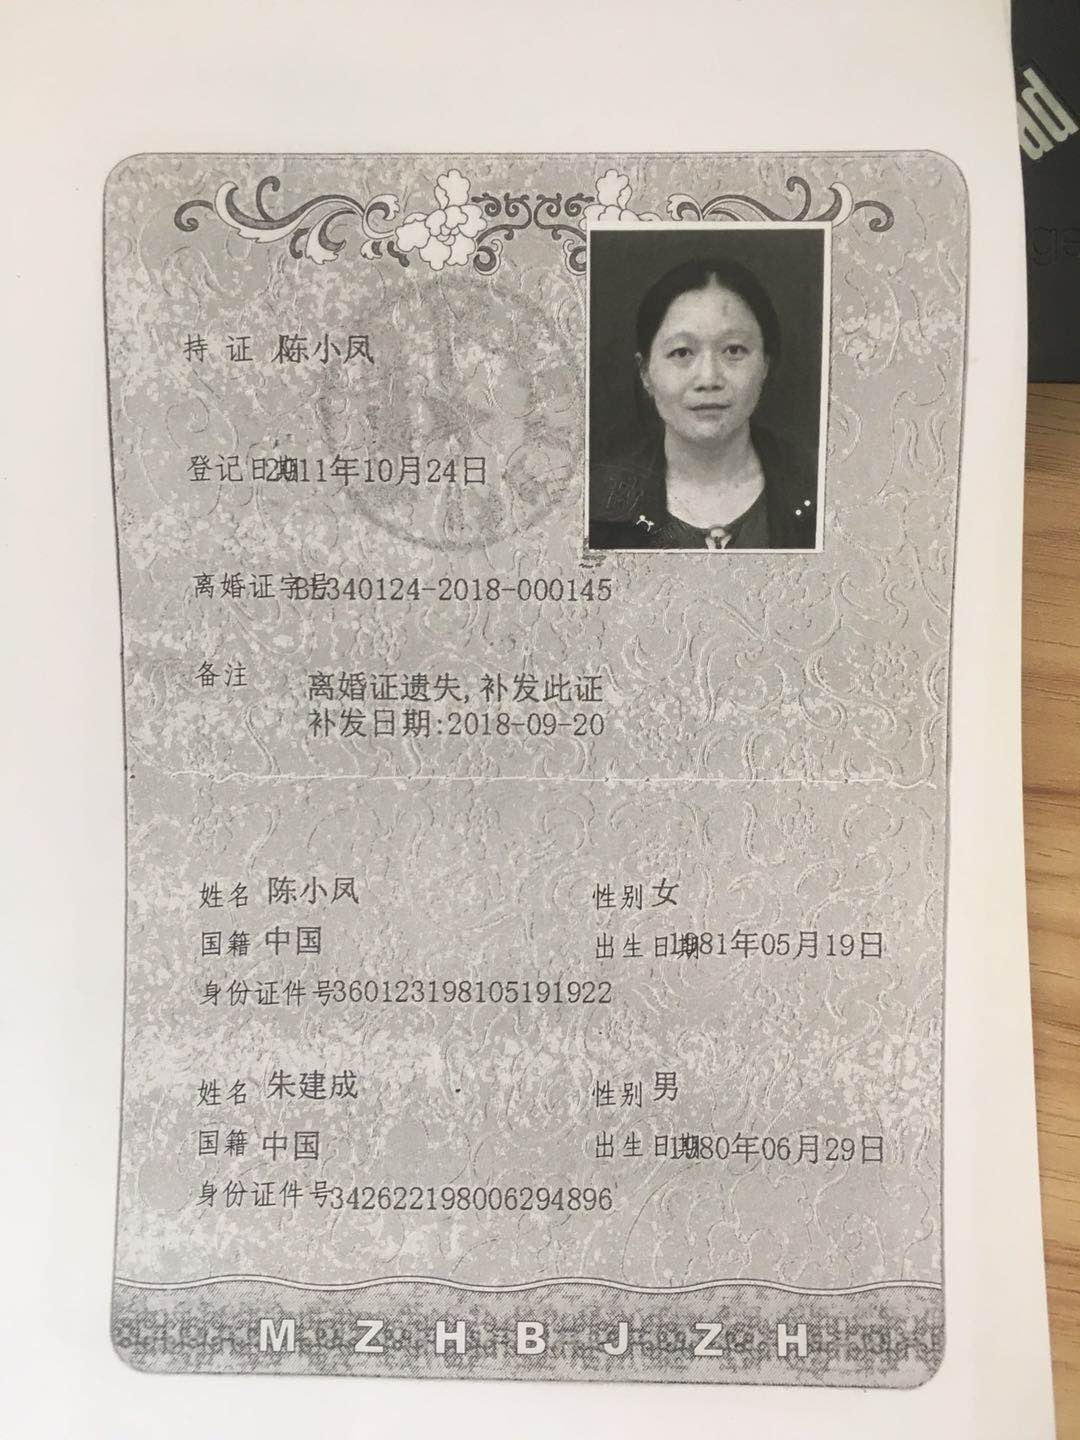 持证人 陈小凤
登记日期 2011年10月24日
离婚证字号 BL340124-2018-000145
备注 离婚证遗失,补发此证
补发日期:2018-09-20
姓名 陈小凤 性别 女
国籍 中国 出生日期 1981年05月19日
身份证件号 360123198105191922
姓名 朱建成 性别 男
国籍 中国 出生日期 1980年06月29日
身份证件号 342622198006294896
MZHBJZH